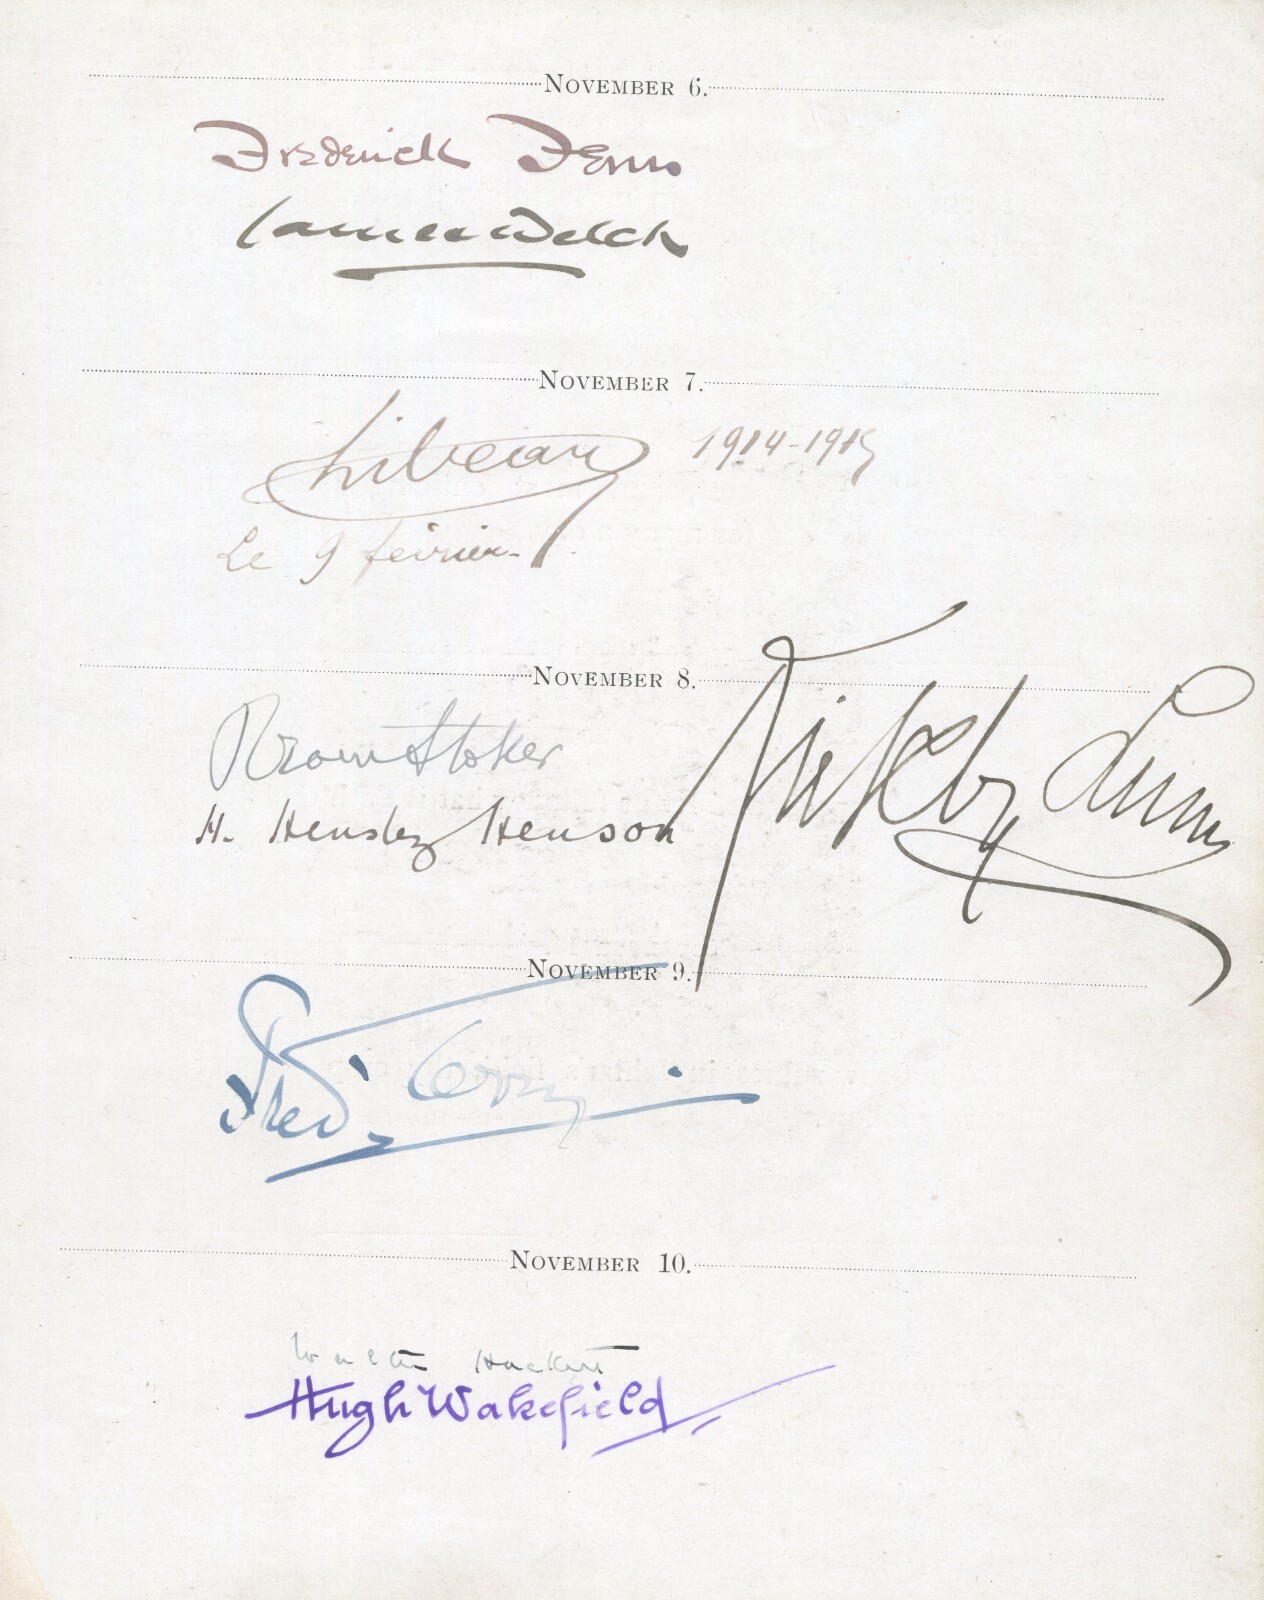 NOVEMBER 6.
Frederick Fenn
James Welch
NOVEMBER 7.
1914-1915
Le 9 février
NOVEMBER 8.
Bram Stoker
H. Hensley Henson
NOVEMBER 9.
Fred Terry
NOVEMBER 10.
Walter Hackett
Hugh Wakefield